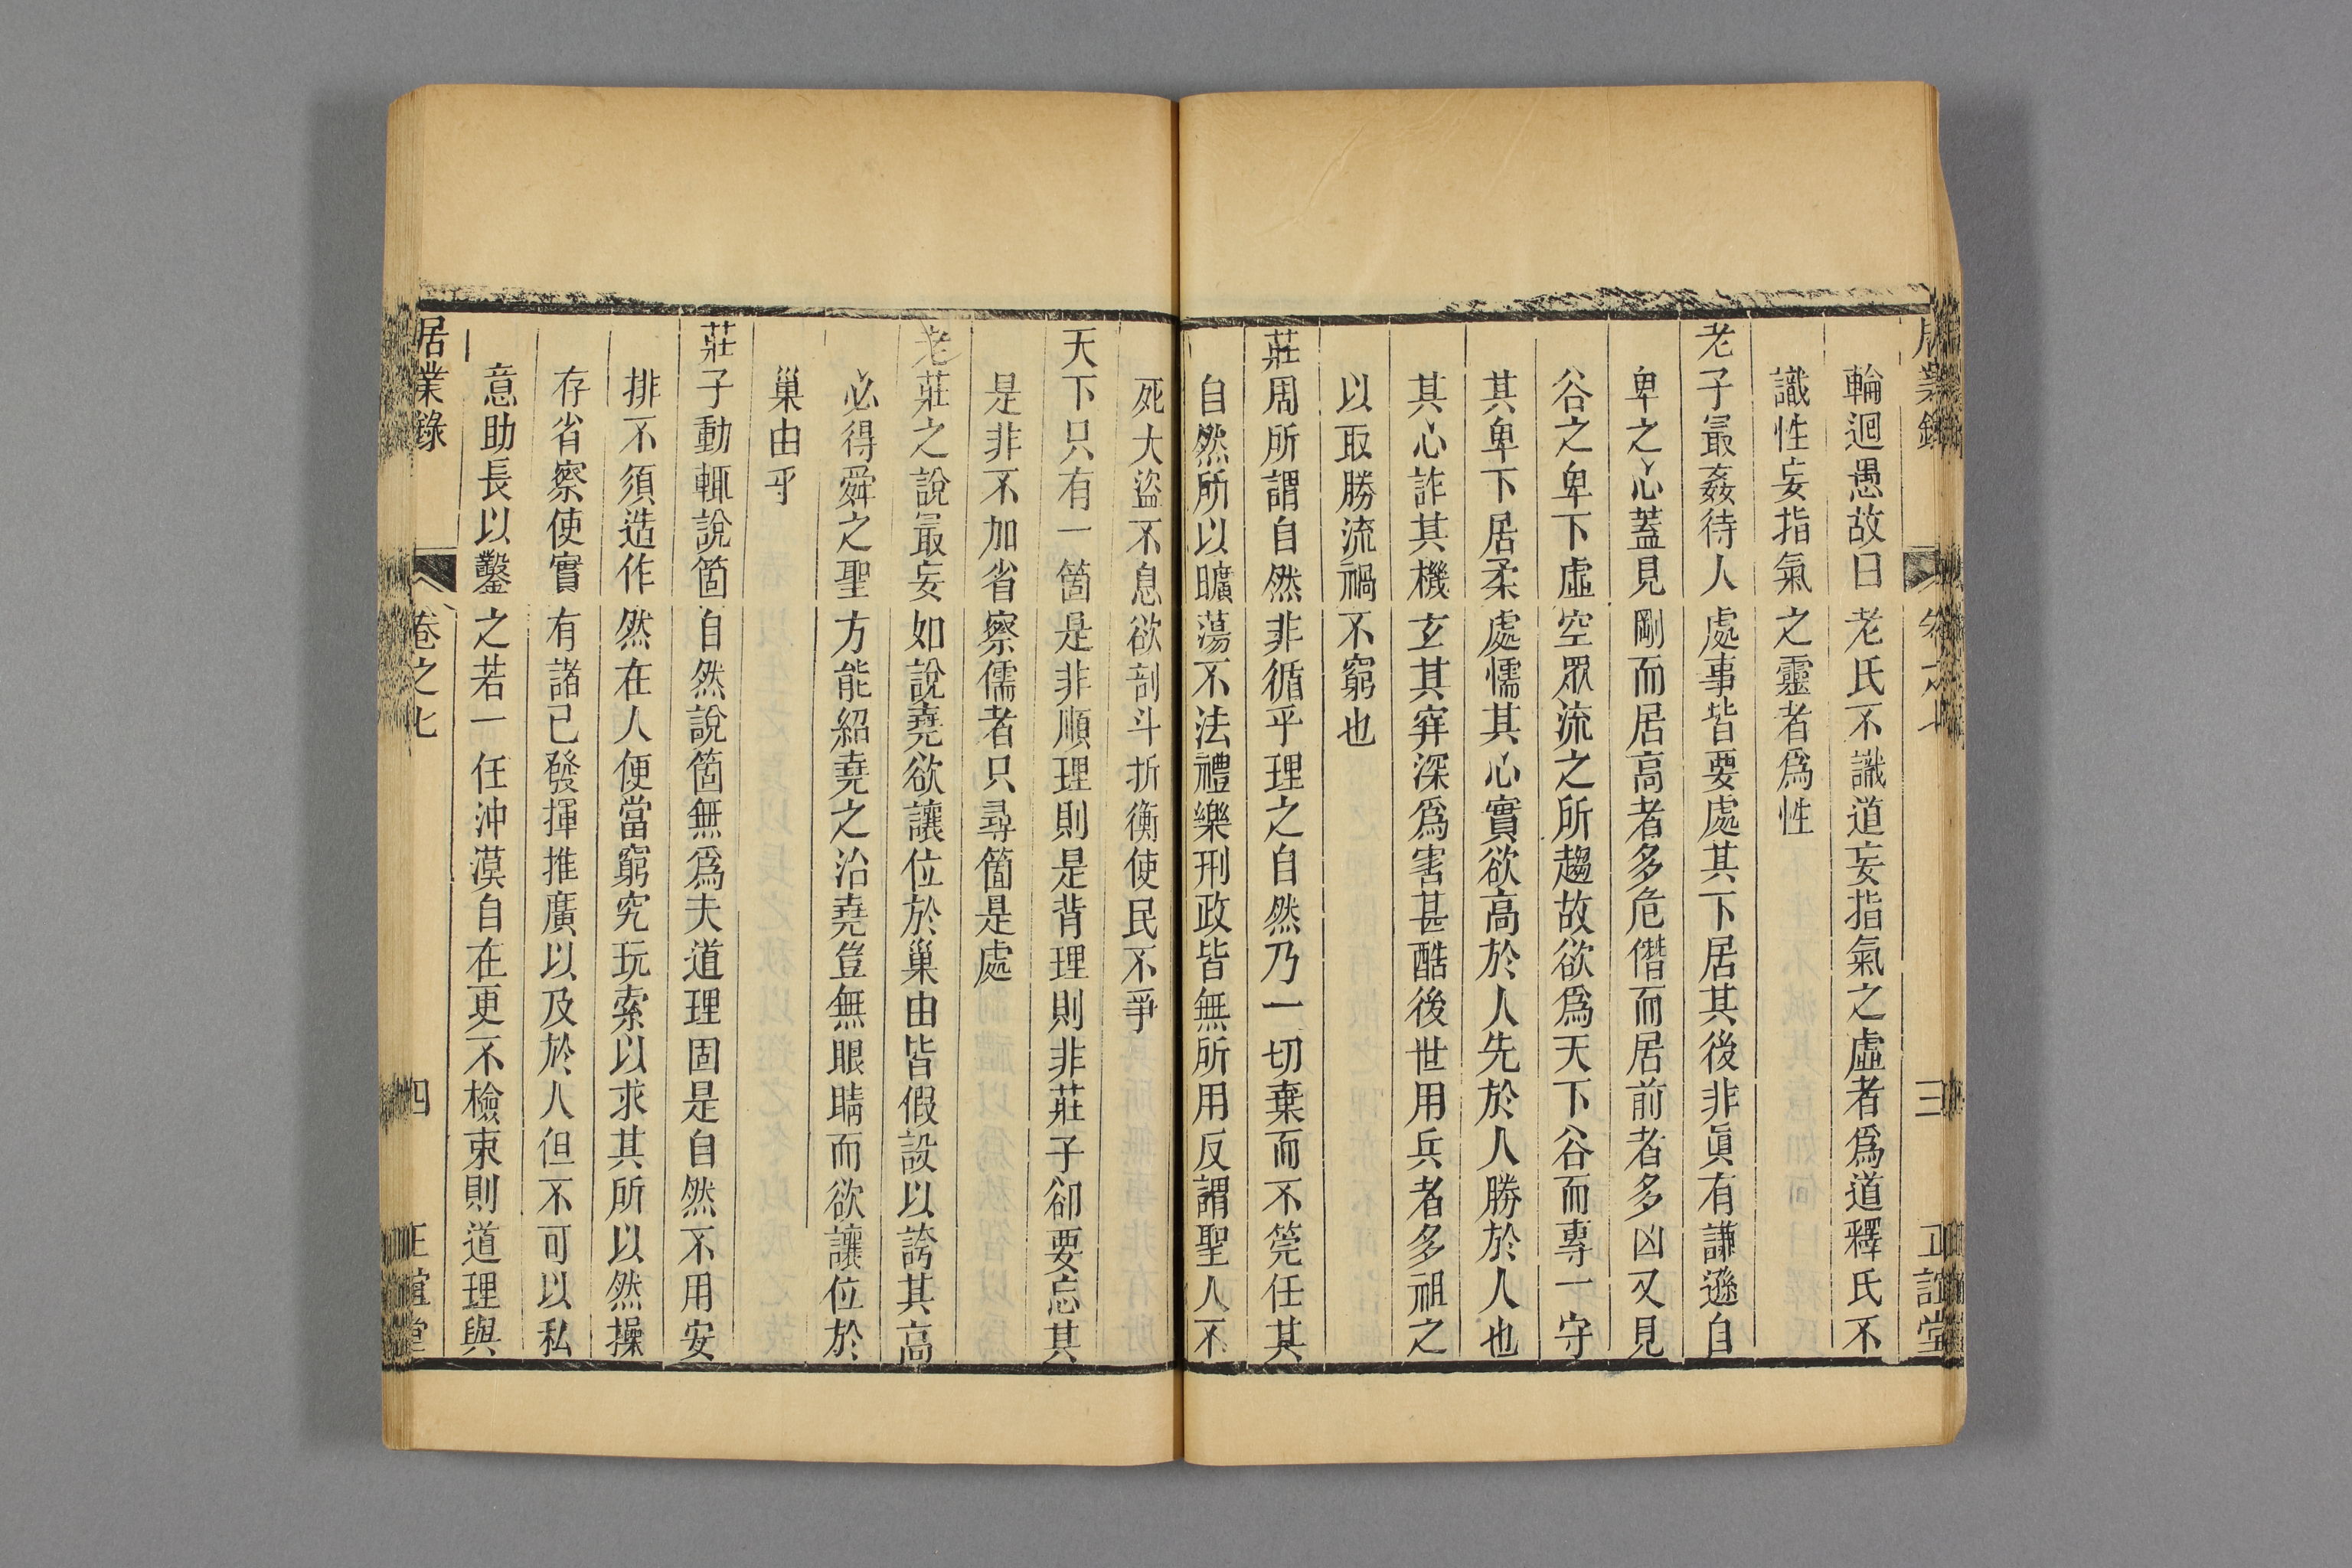 居業錄 卷之七 三 正誼堂
輪迴愚故曰老氏不識道妄指氣之虛者爲道釋氏不
識性妄指氣之靈者爲性
老子最姦待人處事皆要處其下居其後非眞有謙遜自
卑之心蓋見剛而居高者多危僭而居前者多凶又見
谷之卑下虛空眾流之所趨故欲爲天下谷而專一守
其卑下居柔處懦其心實欲高於人先於人勝於人也
其心詐其機玄其穽深爲害甚酷後世用兵者多祖之
以取勝流禍不窮也
莊周所謂自然非循乎理之自然乃一切棄而不筦任其
自然所以曠蕩不法禮樂刑政皆無所用反謂聖人不
死大盜不息欲剖斗折衡使民不爭
天下只有一箇是非順理則是背理則非莊子卻要忘其
是非不加省察儒者只尋箇是處
老莊之說最妄如說堯欲讓位於巢由皆假設以誇其高
必得舜之聖方能紹堯之治堯豈無眼睛而欲讓位於
巢由乎
莊子動輒說箇自然說箇無爲夫道理固是自然不用安
排不須造作然在人便當窮究玩索以求其所以然操
存省察使實有諸己發揮推廣以及於人但不可以私
意助長以鑿之若一任沖漠自在更不檢束則道理與
居業錄 卷之七 四 正誼堂